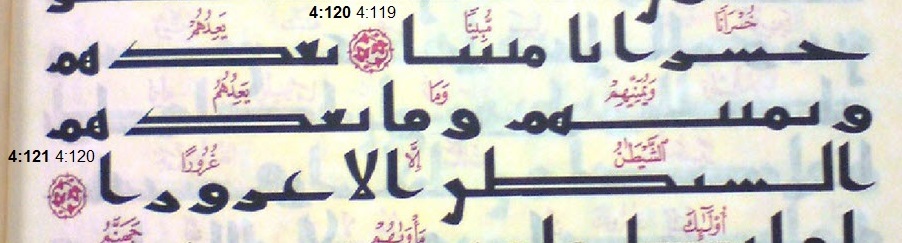 4:120 4:119
خُسْرَانًا مُّبِينًا يَعِدُهُمْ
خسرانا مبينا يعدهم
وَيُمَنِّيهِمْ وَمَا يَعِدُهُمُ
ويمنيهم وما يعدهم
4:121 4:120
الشَّيْطَٰنُ إِلَّا غُرُورًا
الشيطن الا غرورا
أُوْلَٰٓئِكَ مَأْوَىٰهُمْ جَهَنَّمُ